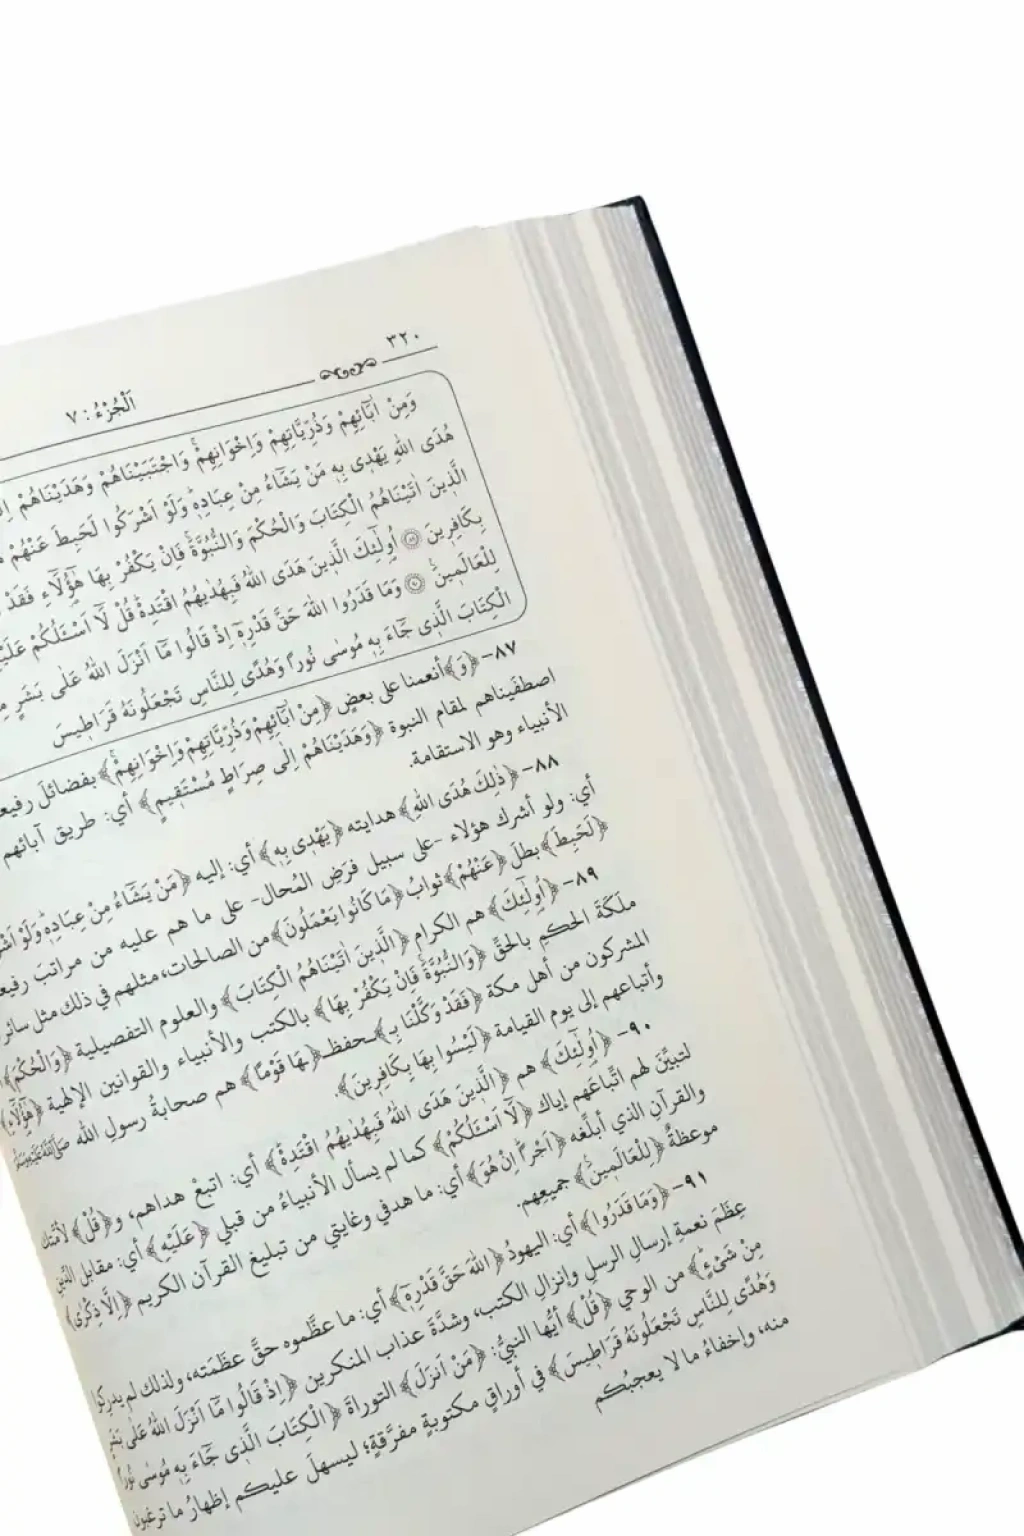 ٣٢٠
اَلْجُزْءُ : ٧
وَمِنْ اٰبَٓائِهِمْ وَذُرِّيَّاتِهِمْ وَاِخْوَانِهِمْۚ وَاجْتَبَيْنَاهُمْ وَهَدَيْنَاهُمْ
هُدَى اللّٰهِ يَهْد۪ي بِه۪ مَنْ يَشَٓاءُ مِنْ عِبَادِه۪ۜ وَلَوْ اَشْرَكُوا لَحَبِطَ عَنْهُمْ
الَّذ۪ينَ اٰتَيْنَاهُمُ الْكِتَابَ وَالْحُكْمَ وَالنُّبُوَّةَۚ فَاِنْ يَكْفُرْ بِهَا هٰٓؤُ۬لَٓاءِ فَقَدْ
بِكَافِر۪ينَ ﴿٨٩﴾ اُو۬لٰٓئِكَ الَّذ۪ينَ هَدَى اللّٰهُ فَبِهُدٰيهُمُ اقْتَدِهْۜ قُلْ لَٓا اَسْـَٔلُكُمْ
لِلْعَالَم۪ينَ۟ ﴿٩٠﴾ وَمَا قَدَرُوا اللّٰهَ حَقَّ قَدْرِه۪ٓ اِذْ قَالُوا مَٓا اَنْزَلَ اللّٰهُ عَلٰى بَشَرٍ
الْكِتَابَ الَّذ۪ي جَٓاءَ بِه۪ مُوسٰى نُورًا وَهُدًى لِلنَّاسِ تَجْعَلُونَهُ قَرَاط۪يسَ
٨٧- ﴿وَ﴾ أنعمنا على بعضٍ ﴿مِنْ اٰبَٓائِهِمْ وَذُرِّيَّاتِهِمْ وَاِخْوَانِهِمْۚ﴾ بفضائلَ
اصطفَيناهم لمقام النبوة ﴿وَهَدَيْنَاهُمْ اِلٰى صِرَاطٍ مُسْتَق۪يمٍ﴾ أي: طريق آبائهم
الأنبياء وهو الاستقامة.
٨٨- ﴿ذٰلِكَ هُدَى اللّٰهِ﴾ هدايته ﴿يَهْد۪ي بِه۪﴾ أي: إليه ﴿مَنْ يَشَٓاءُ مِنْ عِبَادِه۪ۜ وَلَوْ
أي: ولو أشرك هؤلاء -على سبيل فرَضِ المُحال- على ما هم عليه من مراتبَ
﴿لَحَبِطَ﴾ بطلَ ﴿عَنْهُمْ﴾ ثوابُ ﴿مَا كَانُوا يَعْمَلُونَ﴾ من الصالحات، مثلهم في ذلك مثل سائر
٨٩- ﴿اُو۬لٰٓئِكَ﴾ هم الكرام ﴿الَّذ۪ينَ اٰتَيْنَاهُمُ الْكِتَابَ﴾ والعلوم التفصيلية ﴿وَالْحُكْمَ﴾
ملَكَةَ الحكمِ بالحقّ ﴿وَالنُّبُوَّةَۚ فَاِنْ يَكْفُرْ بِهَا﴾ بالكتب والأنبياء والقوانين الإلهية ﴿هٰٓؤُ۬لَٓاءِ﴾
المشركون من أهل مكة ﴿فَقَدْ وَكَّلْنَا بِـ﴾ـحفظـ﴿ـهَا قَوْمًا﴾ هم صحابةُ رسولِ الله ﷺ
وأتباعهم إلى يوم القيامة ﴿لَيْسُوا بِهَا بِكَافِر۪ينَ﴾.
٩٠- ﴿اُو۬لٰٓئِكَ﴾ هم ﴿الَّذ۪ينَ هَدَى اللّٰهُ فَبِهُدٰيهُمُ اقْتَدِهْۜ﴾ أي: اتبعْ هداهم، و﴿قُلْ﴾ لأمّتك
لتبيِّنَ لهم اتّباعَهم إياك ﴿لَٓا اَسْـَٔلُكُمْ﴾ كما لم يسأل الأنبياءُ من قبلي ﴿عَلَيْهِ﴾ أي: مقابل الدّينِ
والقرآنِ الذي أبلّغه ﴿اَجْرًاۜ اِنْ هُوَ﴾ أي: ما هدفي وغايتي من تبليغ القرآن الكريم ﴿اِلَّا ذِكْرٰى﴾
موعظةٌ ﴿لِلْعَالَم۪ينَ۟﴾ جميعِهم.
٩١- ﴿وَمَا قَدَرُوا﴾ أي: اليهودُ ﴿اللّٰهَ حَقَّ قَدْرِه۪ٓ﴾ أي: ما عظَّموه حقَّ عظَمَته، ولذلك لم يدرِكوا
عِظَمَ نعمةِ إرسالِ الرسلِ وإنزالِ الكتب، وشدَّةَ عذاب المنكرين ﴿اِذْ قَالُوا مَٓا اَنْزَلَ اللّٰهُ عَلٰى بَشَرٍ
مِنْ شَيْءٍۜ﴾ من الوحي ﴿قُلْ﴾ أيُّها النبيُّ: ﴿مَنْ اَنْزَلَ﴾ التوراةَ ﴿الْكِتَابَ الَّذ۪ي جَٓاءَ بِه۪ مُوسٰى نُورًا
وَهُدًى لِلنَّاسِ تَجْعَلُونَهُ قَرَاط۪يسَ﴾ في أوراقٍ مكتوبةٍ مفرَّقةٍ؛ ليسهلَ عليكم إظهارُ ما ترغبون
منه، وإخفاءُ ما لا يعجبُكم